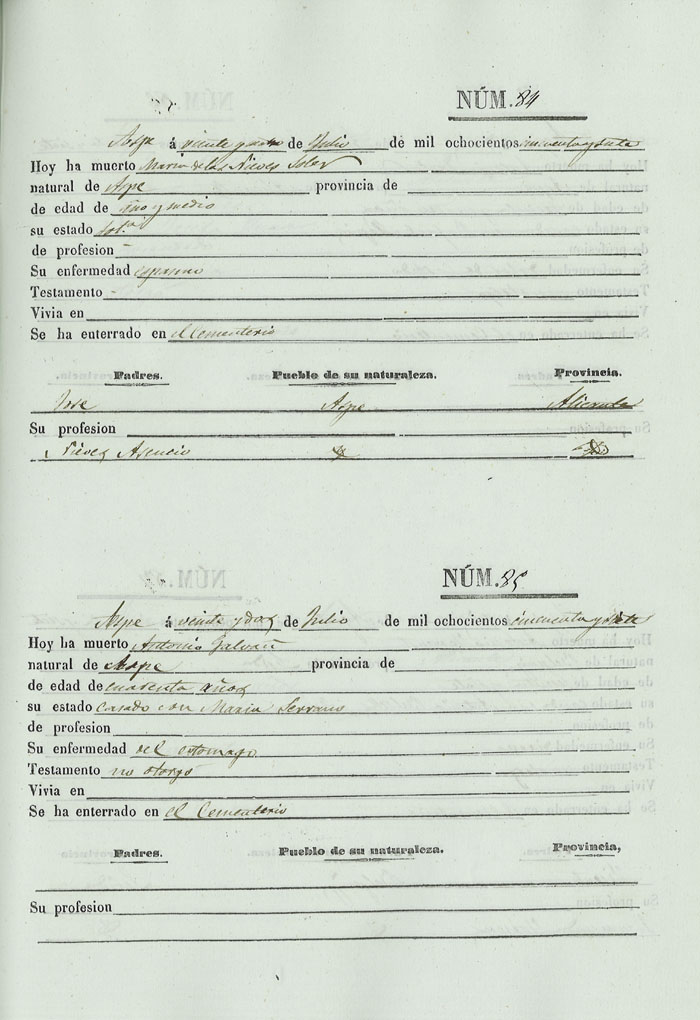 NÚM. 84
Aspe á veinte y de Julio de mil ochocientos cincuenta y siete
Hoy ha muerto Maria de las Nieves Soler
natural de Aspe provincia de
de edad de año y medio
su estado Solª
de profesion -
Su enfermedad espasmo
Testamento -
Vivia en
Se ha enterrado en el Cementerio
Padres. Pueblo de su naturaleza. Provincia.
Jose Aspe Alicante
Su profesion
Nieves Asencio
NÚM. 85
Aspe á veinte y dos de Julio de mil ochocientos cincuenta y siete
Hoy ha muerto Antonio Galvañ
natural de Aspe provincia de
de edad de cuarenta años
su estado casado con Maria Serrano
de profesion
Su enfermedad del estomago
Testamento no otorgó
Vivia en
Se ha enterrado en el Cementerio
Padres. Pueblo de su naturaleza. Provincia,
Su profesion